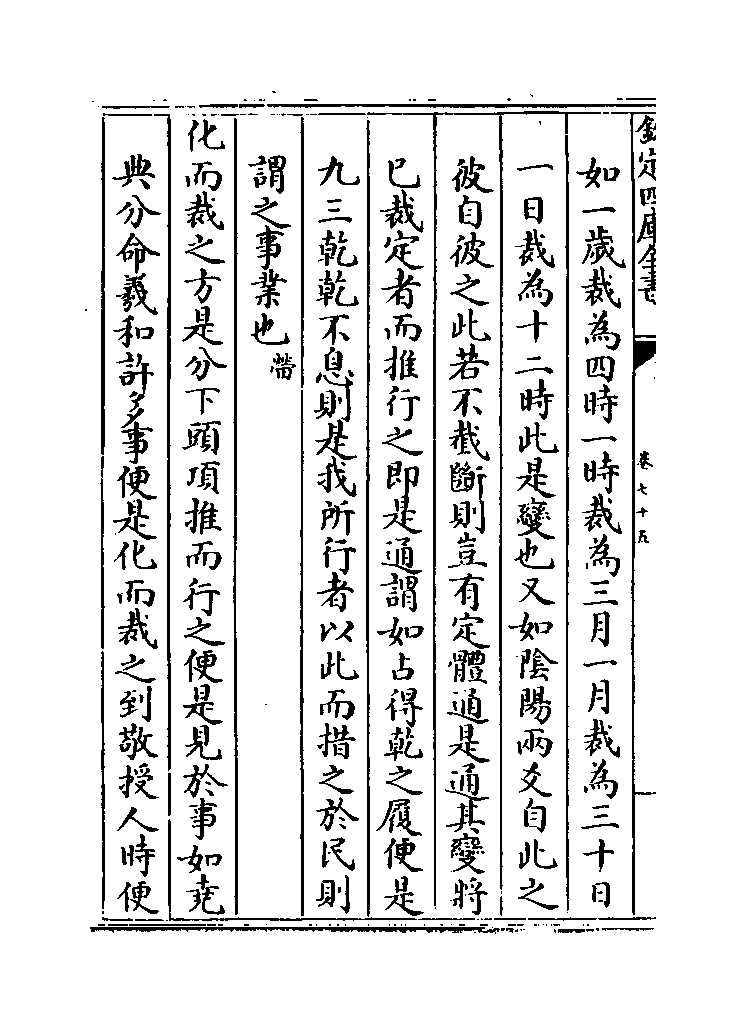 欽定四庫全書
卷七十五
如一歲裁為四時一時裁為三月一月裁為三十日
一日裁為十二時此是變也又如陰陽兩爻自此之
彼自彼之此若不截斷則豈有定體通是通其變將
已裁定者而推行之即是通謂如占得乾之履便是
九三乾乾不息則是我所行者以此而措之於民則
謂之事業也㽦
化而裁之方是分下頭項推而行之便是見於事如堯
典分命羲和許多事便是化而裁之到敬授人時便